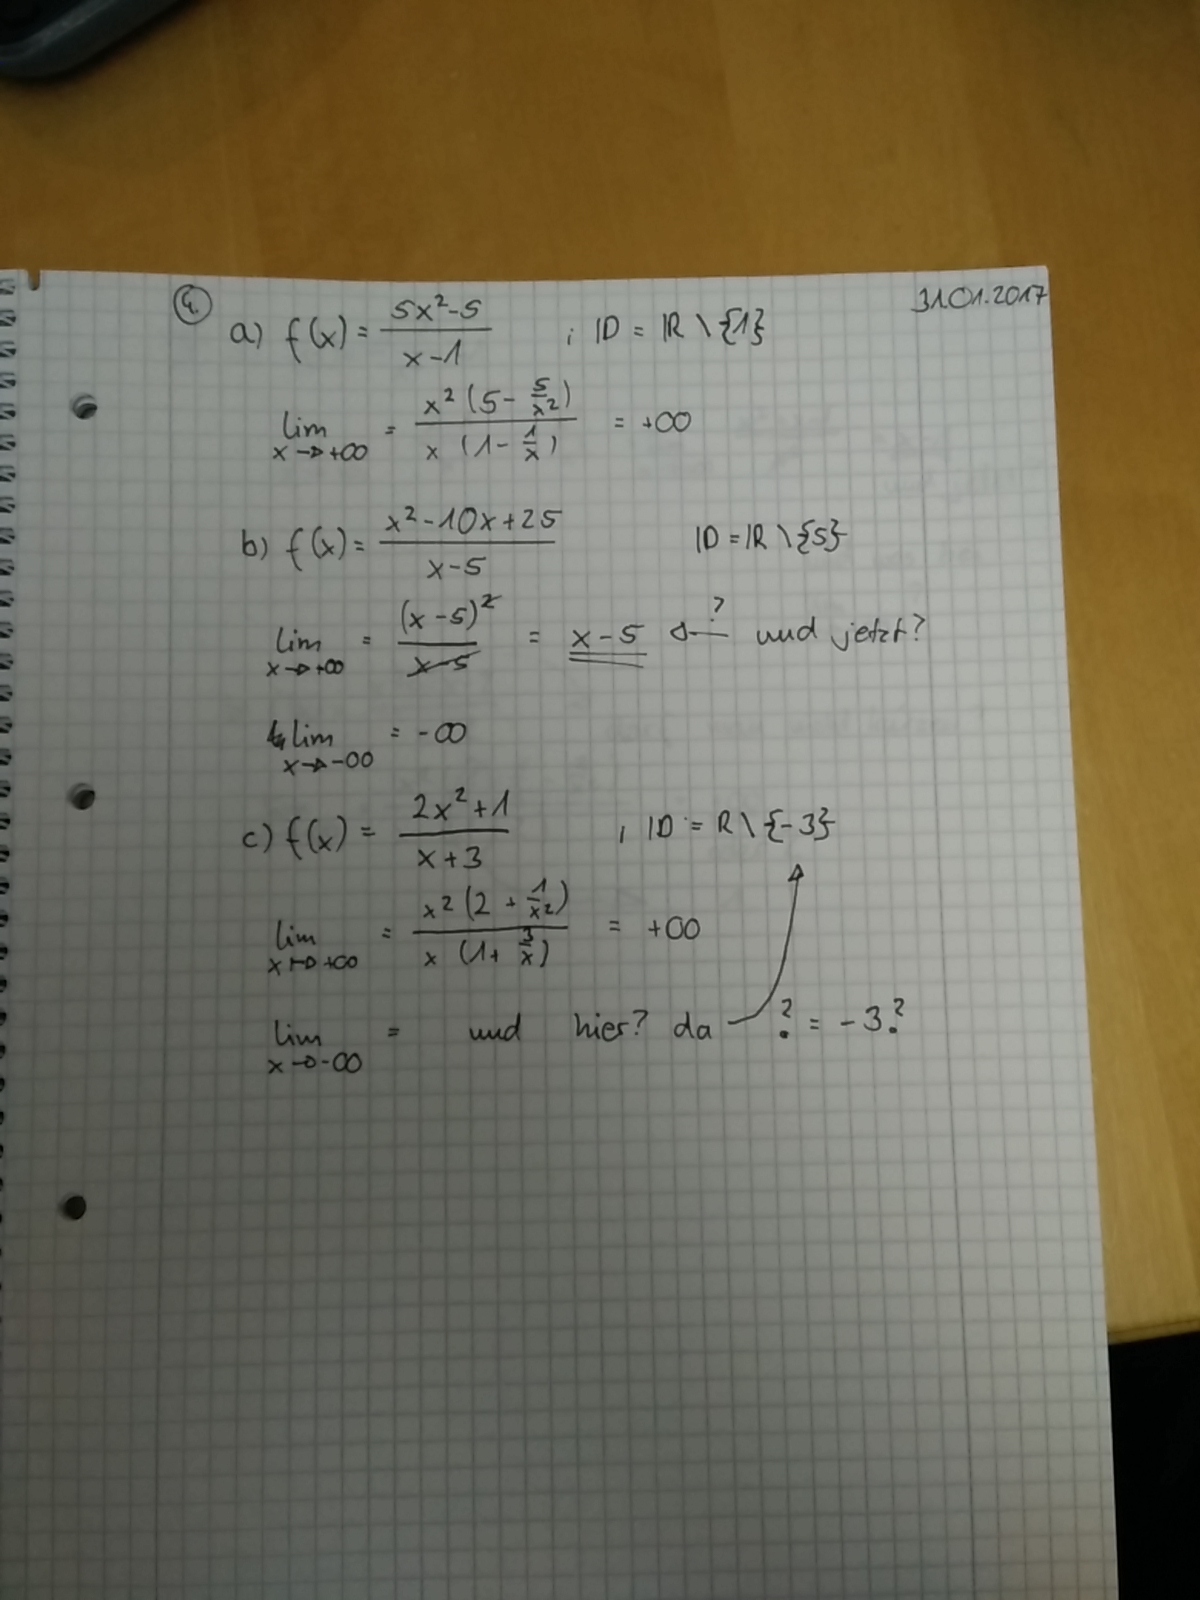 31.01.2017
4. a) f(x) = (5x²-5)/(x-1) ; ID = IR \ {1}
lim x→+∞ = x²(5-5/x²)/x(1-1/x) = +∞
b) f(x) = (x²-10x+25)/(x-5) ID = IR \ {5}
lim x→+∞ = (x-5)²/(x-5) = x-5 ←? und jetzt?
lim x→-∞ = -∞
c) f(x) = (2x²+1)/(x+3) ; ID = R \ {-3}
lim x→+∞ = x²(2+1/x²)/x(1+3/x) = +∞
lim x→-∞ = und hier? da ? = -3?